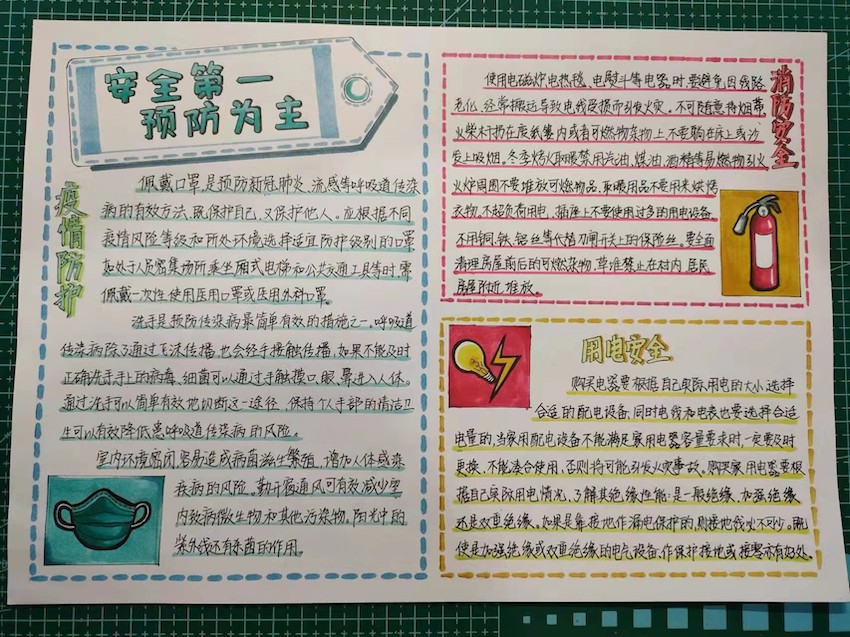 安全第一
预防为主
疫情防护
佩戴口罩,是预防新冠肺炎、流感等呼吸道传染
病的有效方法,既保护自己,又保护他人。应根据不同
疫情风险等级和所处环境选择适宜防护级别的口罩
如处于人员密集场所乘坐厢式电梯和公共交通工具等时需
佩戴一次性使用医用口罩或医用外科口罩。
洗手是预防传染病最简单有效的措施之一。呼吸道
传染病除了通过飞沫传播,也会经手接触传播,如果不能及时
正确洗手手上的病毒、细菌可以通过手触摸口、眼、鼻进入人体。
通过洗手可以简单有效地切断这一途径,保持个人手部的清洁卫
生可以有效降低患呼吸道传染病的风险。
室内环境密闭容易造成病菌滋生繁殖,增加人体感染
疾病的风险。勤开窗通风可有效减少室
内致病微生物和其他污染物。阳光中的
紫外线还有杀菌的作用。
消防安全
使用电磁炉电热毯、电熨斗等电器时,要避免因线路
老化、经常搬运导致电线受损而引发火灾。不可随意将烟蒂,
火柴杆扔在废纸篓内或者可燃物杂物上,不要躺在床上或沙
发上吸烟。冬季烤火取暖禁用汽油,煤油,酒精等易燃物引火
火炉周围不要堆放可燃物品,取暖用品不要用来烘烤
衣物。不超负荷用电,插座上不要使用过多的用电设备
不用铜、铁、铝丝等代替刀闸开关上的保险丝。要全面
清理房屋前后的可燃杂物,草堆禁止在村内、居民
房屋附近堆放。
用电安全
购买电器要根据自己实际用电的大小,选择
合适的配电设备,同时电线和电表也要选择合适
电量的,当家用配电设备不能满足家用电器容量要求时,一定要及时
更换,不能凑合使用,否则将可能引发火灾事故。购买家用电器要根
据自己实际用电情况,了解其绝缘性能:是一般绝缘、加强绝缘
还是双重绝缘。如果是靠接地作漏电保护的,则接地线必不可少。既
使是加强绝缘或双重绝缘的电气设备,作保护接地或接零亦有好处。